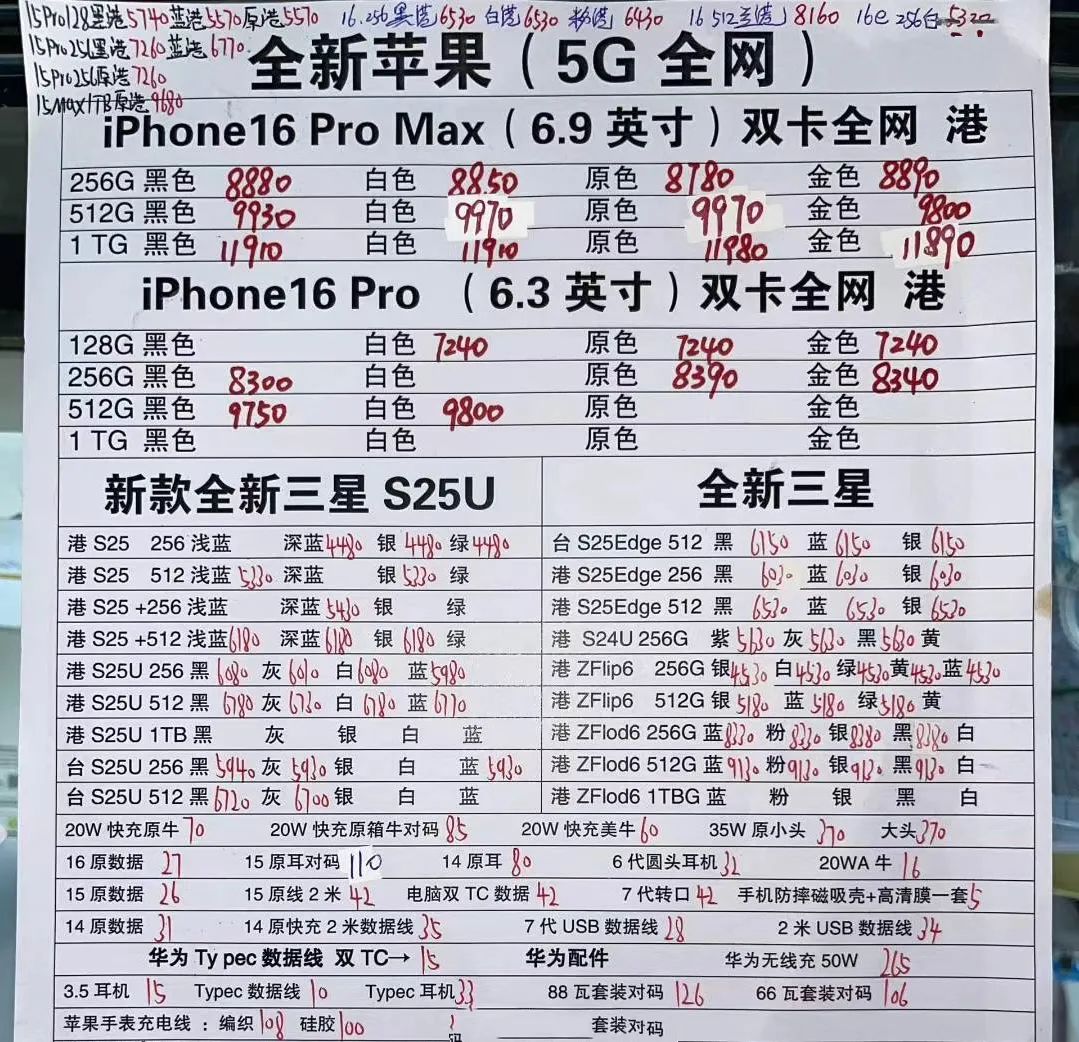 15Pro128黑港5740蓝港5570原港5570 16.256黑港6530 白港6530 粉港6430 16 512兰港8160 16e 256白5320
15Pro256黑港7260蓝港6770
15Pro256原港7260
15Max1TB原港9680
全新苹果（5G 全网）
iPhone16 Pro Max（6.9 英寸）双卡全网 港
256G 黑色 8880 白色 8850 原色 8780 金色 8890
512G 黑色 9930 白色 9970 原色 9970 金色 9800
1 TG 黑色 11910 白色 11910 原色 11980 金色 11890
iPhone16 Pro （6.3 英寸）双卡全网 港
128G 黑色 白色 7240 原色 7240 金色 7240
256G 黑色 8300 白色 原色 8390 金色 8340
512G 黑色 9750 白色 9800 原色 金色
1 TG 黑色 白色 原色 金色
新款全新三星 S25U
港 S25 256 浅蓝 深蓝4480 银 4480 绿4480
港 S25 512 浅蓝 5330 深蓝 银 5330 绿
港 S25 +256 浅蓝 深蓝5430 银 绿
港 S25 +512 浅蓝6180 深蓝6180 银 6180 绿
港 S25U 256 黑 6080 灰 6010 白6080 蓝5980
港 S25U 512 黑 6780 灰 6730 白 6780 蓝 6770
港 S25U 1TB 黑 灰 银 白 蓝
台 S25U 256 黑 5940 灰 5930 银 白 蓝 5930
台 S25U 512 黑 6720 灰 6700 银 白 蓝
全新三星
台 S25Edge 512 黑 6150 蓝 6150 银 6150
港 S25Edge 256 黑 6030 蓝 6030 银 6030
港 S25Edge 512 黑 6530 蓝 6530 银 6530
港 S24U 256G 紫 5630 灰 5630 黑 5630 黄
港 ZFlip6 256G 银4530 白4530 绿4530 黄4530 蓝4530
港 ZFlip6 512G 银 5180 蓝 5180 绿5180 黄
港 ZFlod6 256G 蓝8330 粉8330 银8380 黑8380 白
港 ZFlod6 512G 蓝9130 粉9130 银9130 黑9130 白
港 ZFlod6 1TBG 蓝 粉 银 黑 白
20W 快充原牛 70 20W 快充原箱牛对码 85 20W 快充美牛 60 35W 原小头 370 大头370
16 原数据 27 15 原耳对码 110 14 原耳 80 6 代圆头耳机 32 20WA 牛 16
15 原数据 26 15 原线 2 米 42 电脑双 TC 数据 42 7 代转口 42 手机防摔磁吸壳+高清膜一套5
14 原数据 31 14 原快充 2 米数据线 35 7 代 USB 数据线 28 2 米 USB 数据线 34
华为 Ty pec 数据线 双 TC→ 15 华为配件 华为无线充 50W 265
3.5 耳机 15 Typec 数据线 10 Typec 耳机33 88 瓦套装对码 126 66 瓦套装对码 106
苹果手表充电线 ：编织 108 硅胶 100 套装对码